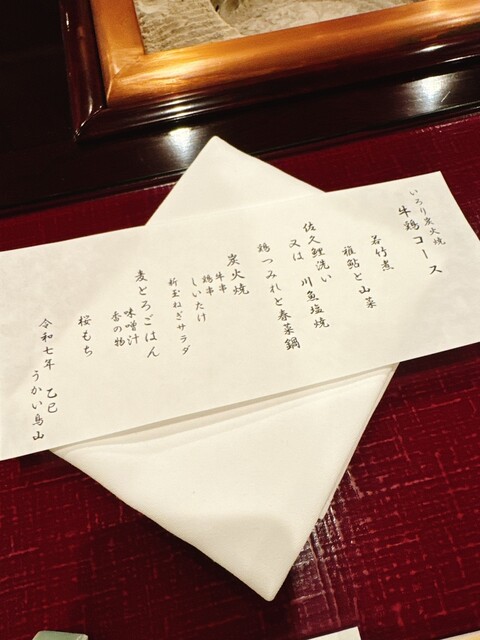 いろり炭火焼
牛鶏コース
若竹煮
稚鮎と山菜
佐久鯉洗い
又は 川魚塩焼
鶏つみれと春菜鍋
炭火焼
牛串
鶏串
しいたけ
新玉ねぎサラダ
麦とろごはん
味噌汁
香の物
桜もち
令和七年 乙巳
うかい鳥山